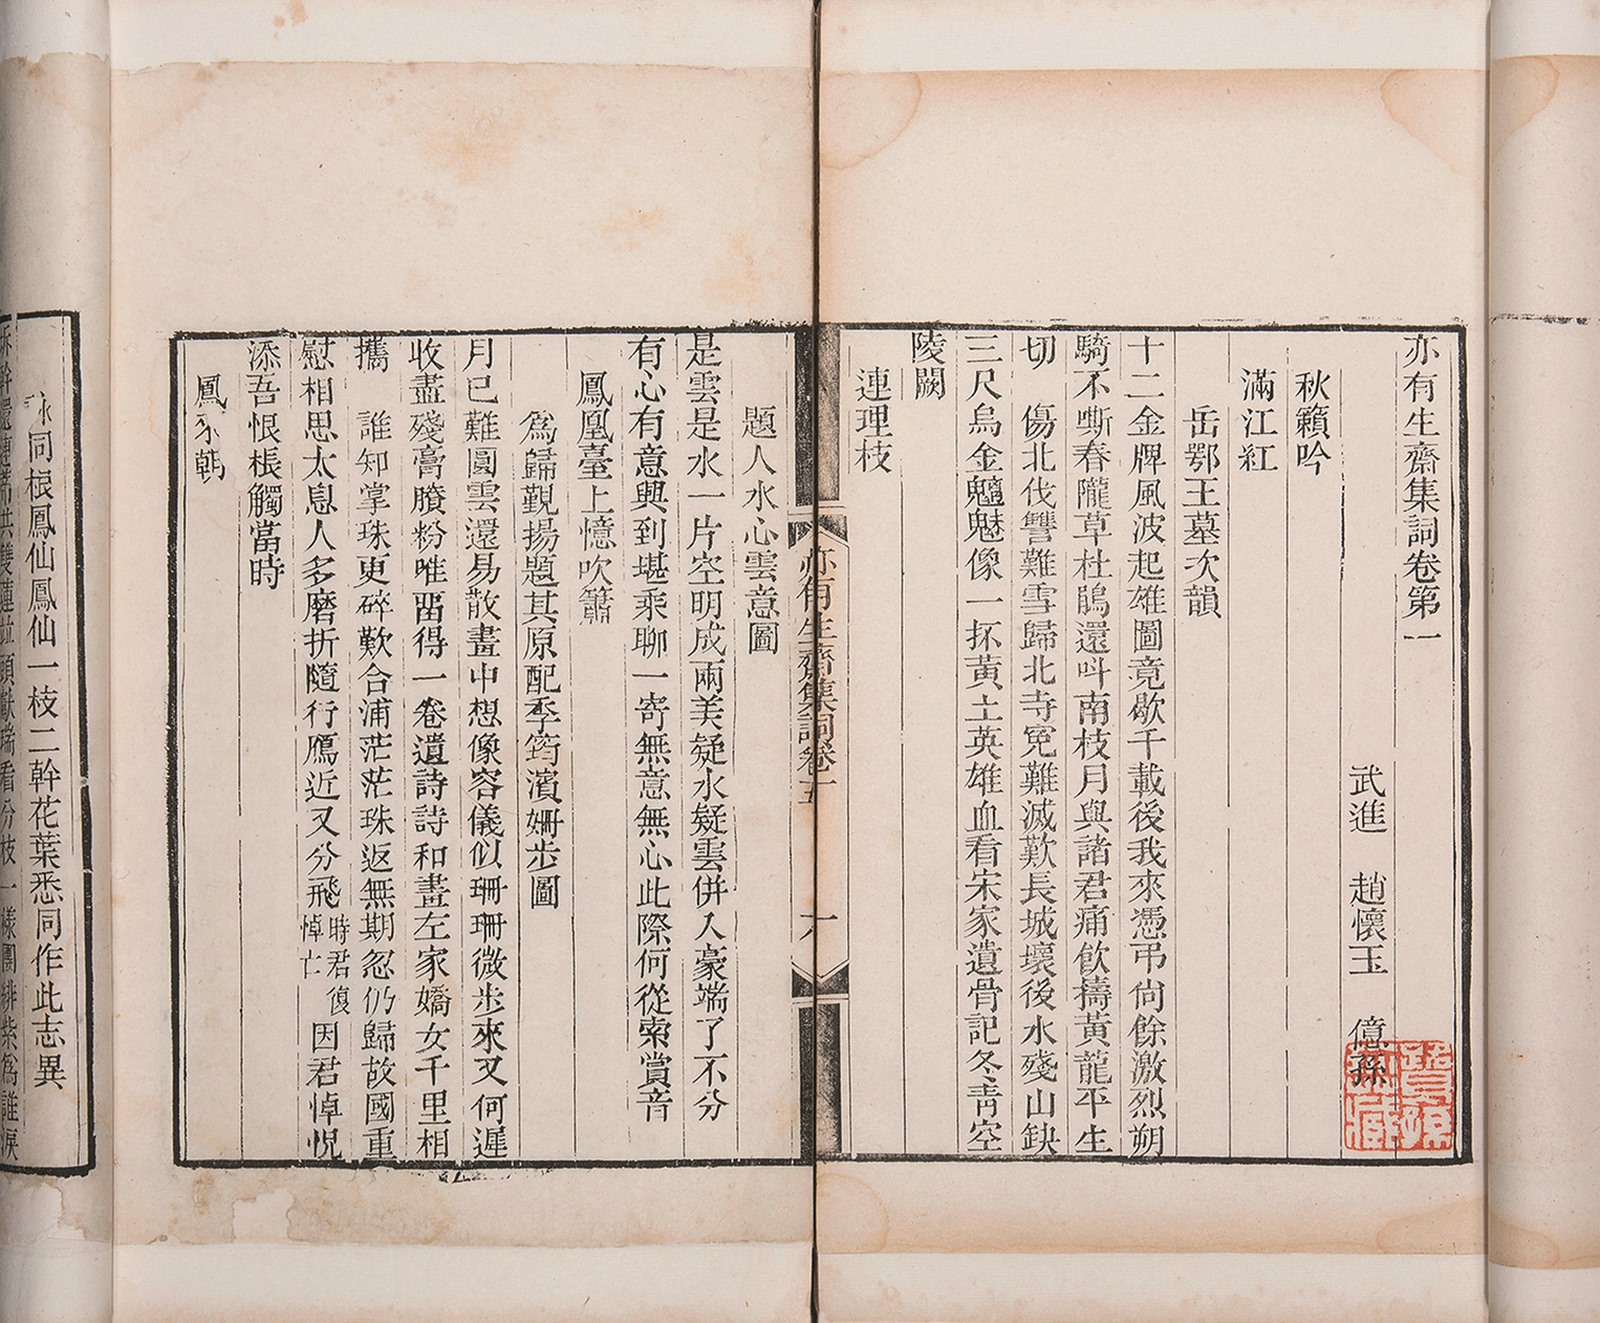 亦有生齋集詞卷第一
武進　趙懷玉　億孫
秋籟吟
滿江紅
岳鄂王墓次韻
十二金牌風波起雄圖竟歇千載後我來憑弔尙餘激烈朔
騎不嘶春隴草杜鵑還叫南枝月與諸君痛飮擣黃龍平生
切　傷北伐讐難雪歸北寺寃難滅歎長城壞後水殘山缺
三尺烏金魑魅像一抔黃土英雄血看宋家遺骨記冬靑空
陵闕
連理枝
亦有生齋集詞卷五
六
題人水心雲意圖
是雲是水一片空明成兩美疑水疑雲併入豪端了不分
有心有意興到堪乘聊一寄無意無心此際何從索賞音
鳳凰臺上憶吹簫
爲歸觀揚題其原配季筠濱姍步圖
月已難圓雲還易散畫中想像容儀似珊珊微步來又何遲
收盡殘膏賸粉唯畱得一卷遺詩詩和畫左家嬌女千里相
攜　誰知掌珠更碎歎合浦茫茫珠返無期忍仍歸故國重
慰相思太息人多磨折隨行鴈近又分飛時君復悼亡因君悼怳
添吾恨棖觸當時
鳳
同根鳳仙鳳仙一枝二幹花葉悉同作此志異
分枝一樣團緋紫爲誰淚